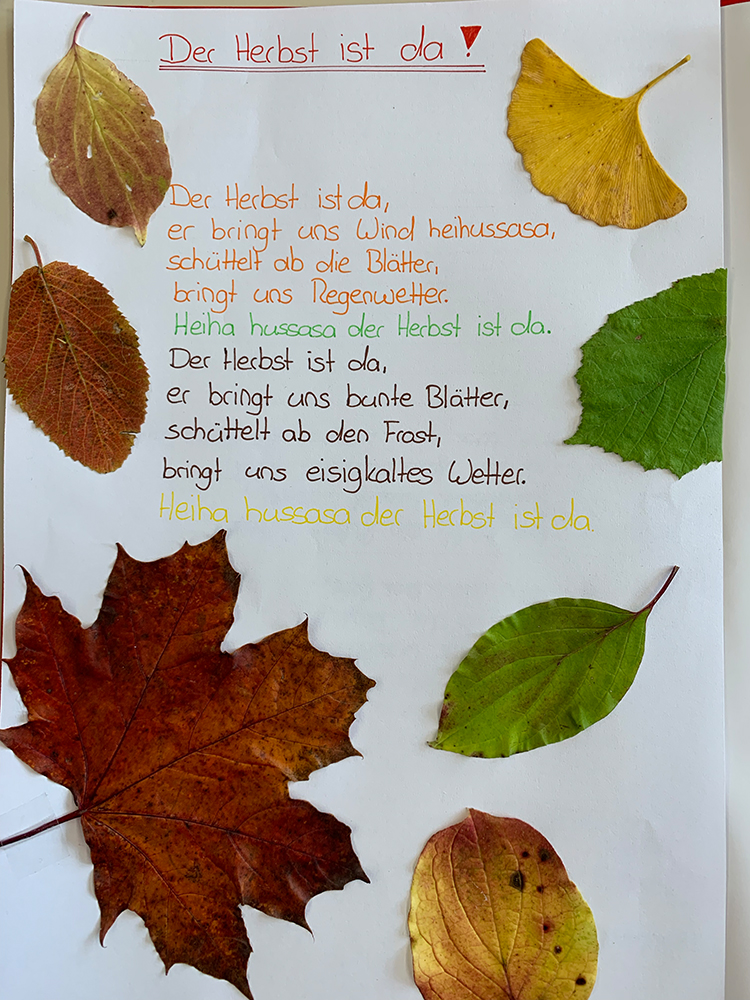 Der Herbst ist da!
Der Herbst ist da,
er bringt uns Wind heihussasa,
schüttelt ab die Blätter,
bringt uns Regenwetter.
Heiha hussasa der Herbst ist da.
Der Herbst ist da,
er bringt uns bunte Blätter,
schüttelt ab den Frost,
bringt uns eisigkaltes Wetter.
Heiha hussasa der Herbst ist da.